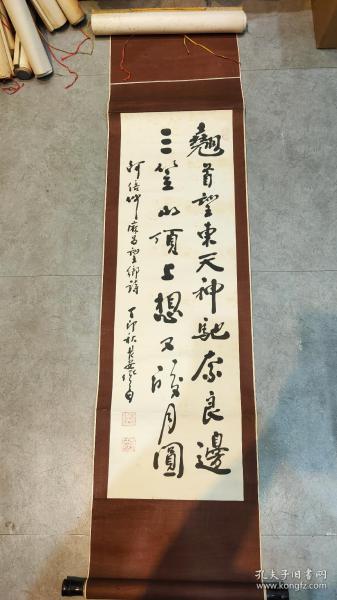 翹首望東天神馳奈良邊
三笠山頂上想又皎月圓
阿倍仲麻吕望鄉詩 丁卯秋長安
孔夫子旧书网